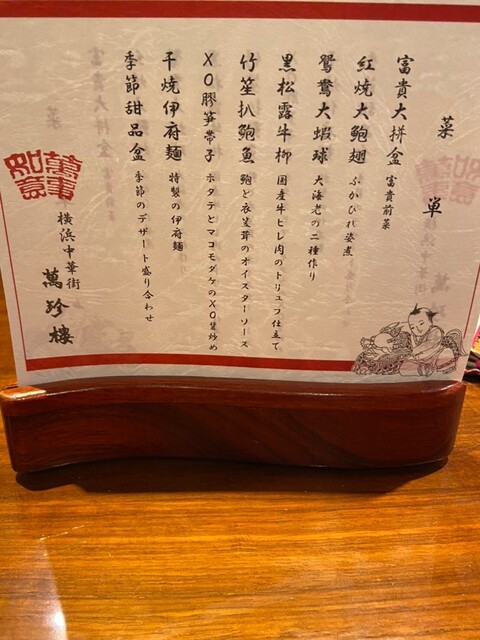 菜單
富貴大拼盆 富貴前菜
紅焼大鮑翅 ふかひれ姿煮
鴛鴦大蝦球 大海老の二種作り
黒松露牛柳 国産牛ヒレ肉のトリュフ仕立て
竹笙扒鮑魚 鮑と衣笠茸のオイスターソース
XO膠笋帯子 ホタテとマコモダケのXO醤炒め
干焼伊府麺 特製の伊府麺
季節甜品盆 季節のデザート盛り合わせ
萬事如意
横浜中華街
萬珍樓